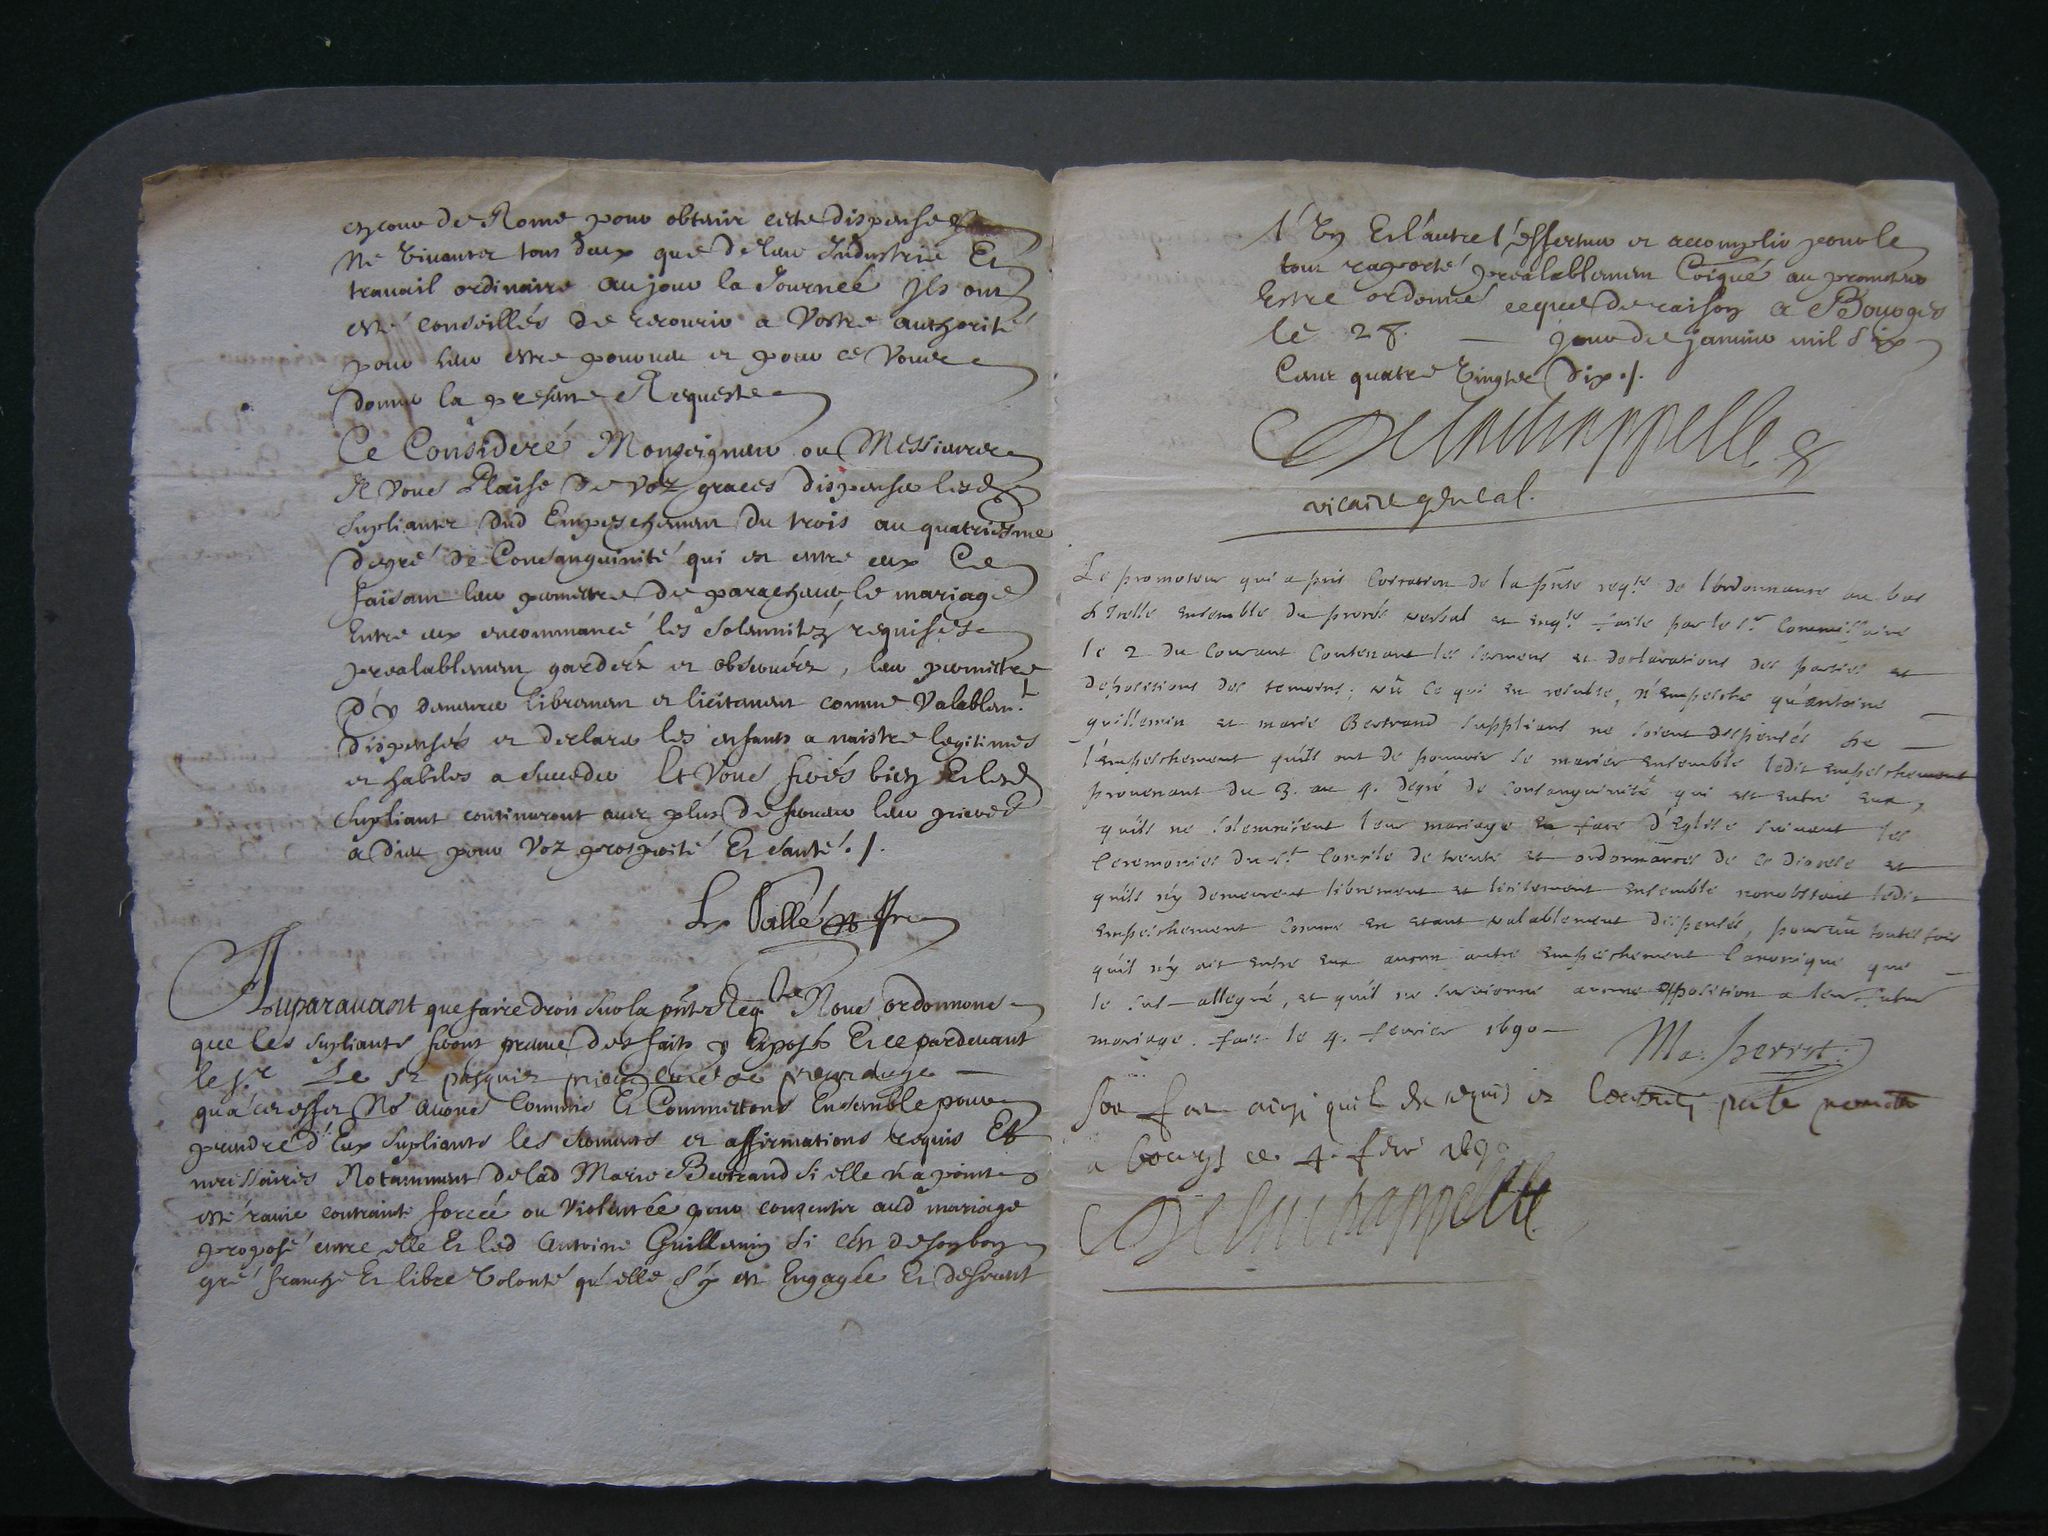 en cour de Rome pour obtenir cette dispense
ne vivantz tous deux que de leur Industrie Et
travail ordinaire au jour la Journeé Jls ont
esté conseillés de recourir a Vostre authorité
pour leur estre pourueu et pour ce Vous
donner la presante Requeste
Ce Consideré Monseigneur ou Messieurs
Il vous Plaise de voz graces dispenser lesd
supliantz dud Empeschement du trois au quatriesme
degré de Consanguinité qui est entre eux Ce
faisant leur permettre de parachever le mariage
Entre eux encommancé les solemnitez requises
prealablement gardées et observées, leur permettre
d'y demeurer librement et licitement comme Valablemt
dispensés et declarer les enfants a naistre legitimes
et habiles a succeder Et Vous ferés bien Et lesd
supliant continueront avec plus de ferveur leur prieres
a dieu pour Voz prosperité Et santé ./.
Auparavant que faire droit sur la pnte Reqte Nous ordonnons
que les supliants feront preuve des faits y Exposés Et ce pardevant
le sr Le sr pasquier prieur curé de
qu'a cet effet No avons Commis Et Commettons Ensemble pour
prendre d'Eux supliants les serments et affirmations requis Et
necessaires Notamment de lad Marie Bertrand si elle n'a point
esté ravie contrainte forcée ou violentée pour consentir aud mariage
proposé entre elle Et led Antoine Guillemin si c'est de son bon
gré franche Et libre Volonté qu'elle s'y est Engagée Et desirent
l'Un Et l'autre l'effectuer et accomplir pour le
tout raporté prealablement Coiqué au promoteur
Estre ordonné ce que de raison a Bourges
le 28. jour de janvier mil six
Cent quatre Vingt et dix ./.
Delachappelle
vicaire gñeral.
Le promoteur qui a pris Coïcation de la pñte reqte de l'ordonnance au bas
d'Icelle ensemble du procés verbal et enqte faite par le sr Commissaire
le 2 du Courant Contenant les sermens et declarations des parties et
depositions des temoins, vû ce qui en resulte, n'Empesche qu'antoine
guillemin et marie Bertrand supplians ne soient dispensés de
l'empeschement qu'ils ont de pouvoir se marier ensemble ledit empeschement
provenant du 3. au 4. degré de consanguinité qui est entre eux,
qu'ils ne solemnisent leur mariage en face d'Eglise suivant les
Ceremonies du st Concile de trente et ordonnances de ce diocese et
qu'ils n'y demeurent librement et licitement ensemble nonobstant ledit
empeschement comme en etant valablement dispensés, pourvû toutesfois
qu'il n'y ait entre eux aucun autre empeschement Canonique que
le sus-allegué, et qu'il ne survienne aucune opposition a leur futur
mariage. fait le 4. fevrier 1690
Soit fait ainsi qu'il est requis et Consenti par le promoteur
a bourges ce 4. fevr 1690
Delachappelle